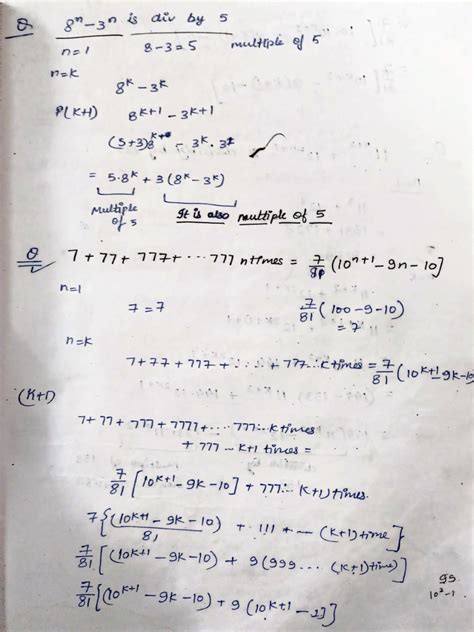 Q. 8ⁿ-3ⁿ is div by 5
n=1 8-3=5 multiple of 5
n=k
8ᵏ-3ᵏ
P(K+1) 8ᵏ⁺¹ - 3ᵏ⁺¹
(5+3)8ᵏ - 3ᵏ.3¹
= 5.8ᵏ + 3(8ᵏ-3ᵏ)
Multiple of 5 It is also multiple of 5
Q 7+77+777+...777 n times = 7/81 (10ⁿ⁺¹-9n-10]
n=1
7=7 7/81 (100-9-10)
=7
n=k
7+77+777+....+777..k times = 7/81 (10ᵏ⁺¹-9k-10
(K+1)
7+77+777+7777+... 777..k times
+ 777 .. k+1 times =
7/81 [10ᵏ⁺¹-9k-10] + 777.. k+1) times.
7{(10ᵏ⁺¹-9k-10)/81 + .111 + -- (k+1) time}
7/81 [(10ᵏ⁺¹-9k-10) + 9(999... (k+1) time)]
99
10²-1
7/81 {(10ᵏ⁺¹-9k-10) + 9(10ᵏ⁺¹-1)}